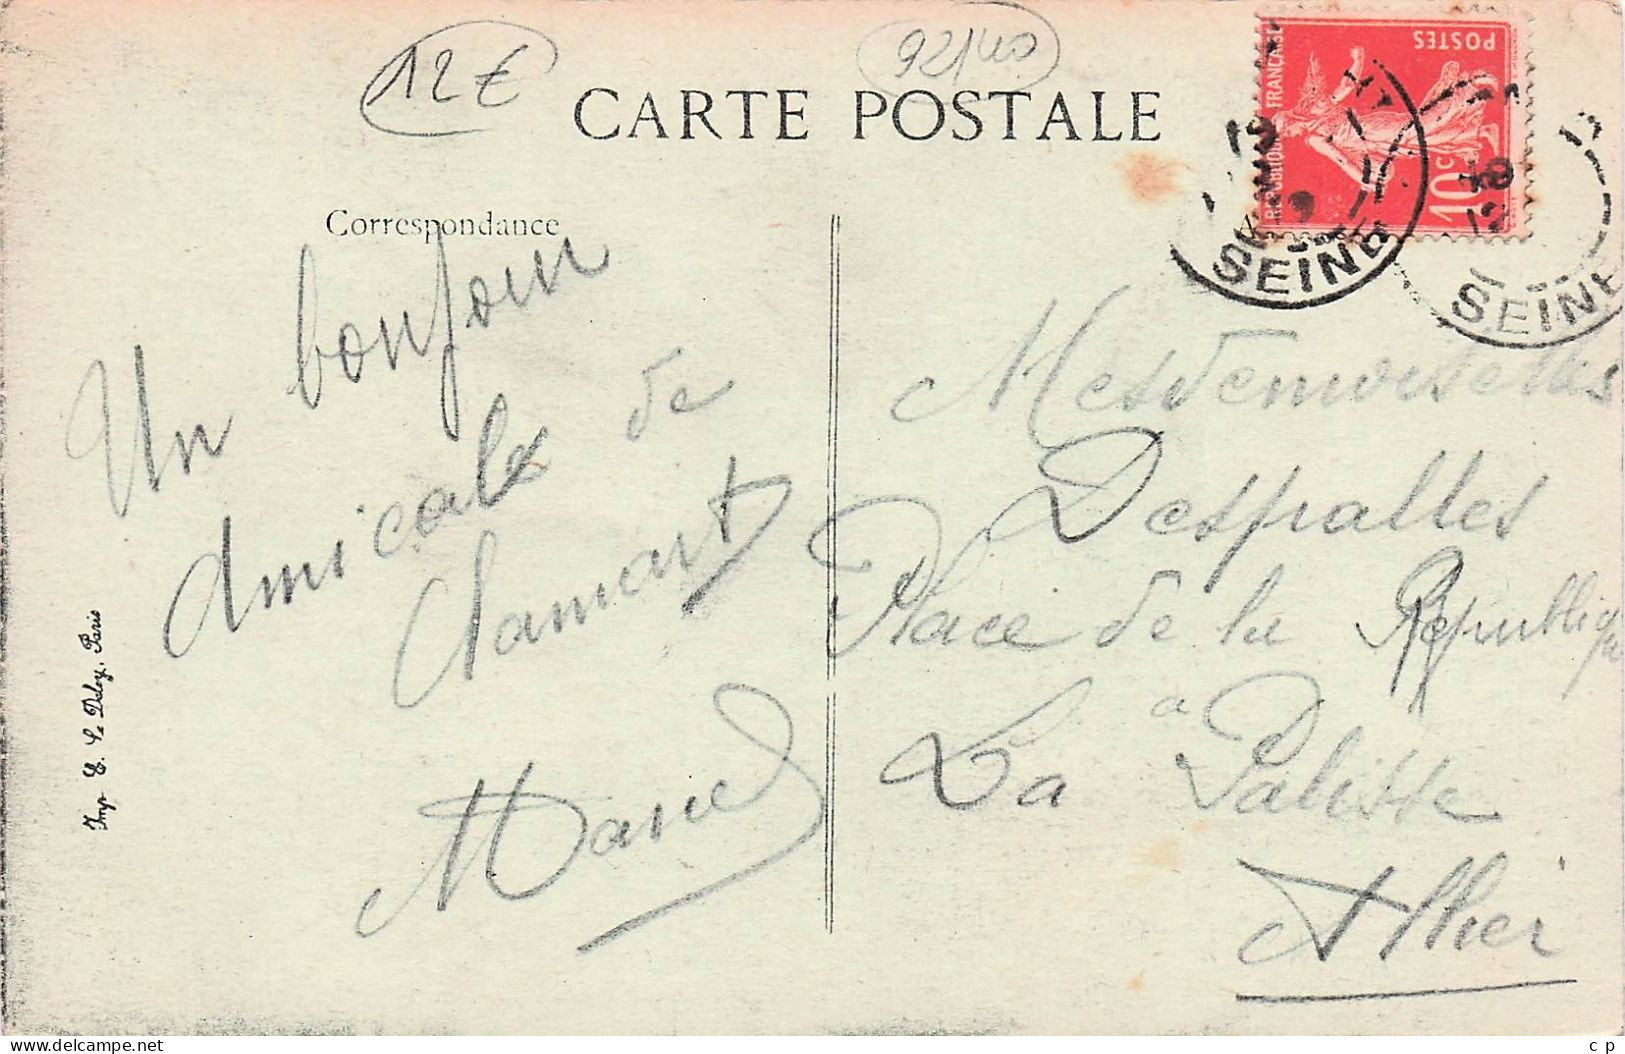 12€
92140
CARTE POSTALE
POSTES
REPUBLIQUE FRANÇAISE
10c
SEINE
SEINE
Correspondance
Un bonjour
amicale de
Clamart
Marcel
Mesdemoiselles
Despalles
Place de la République
a
La Palisse
Allier
Imp. E. Le Deley, Paris
c p